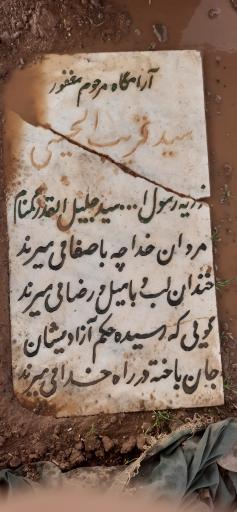 آرامگاه مرحوم مغفور
سید غریب الحسینی
ذریه رسول ا... سید جلیل القدر گمنام
مردان خدا چه باصفا می میرند
خندان لب و با میل و رضا می میرند
گویی که رسیده حکم آزادیشان
جان باخته در راه خدا می میرند